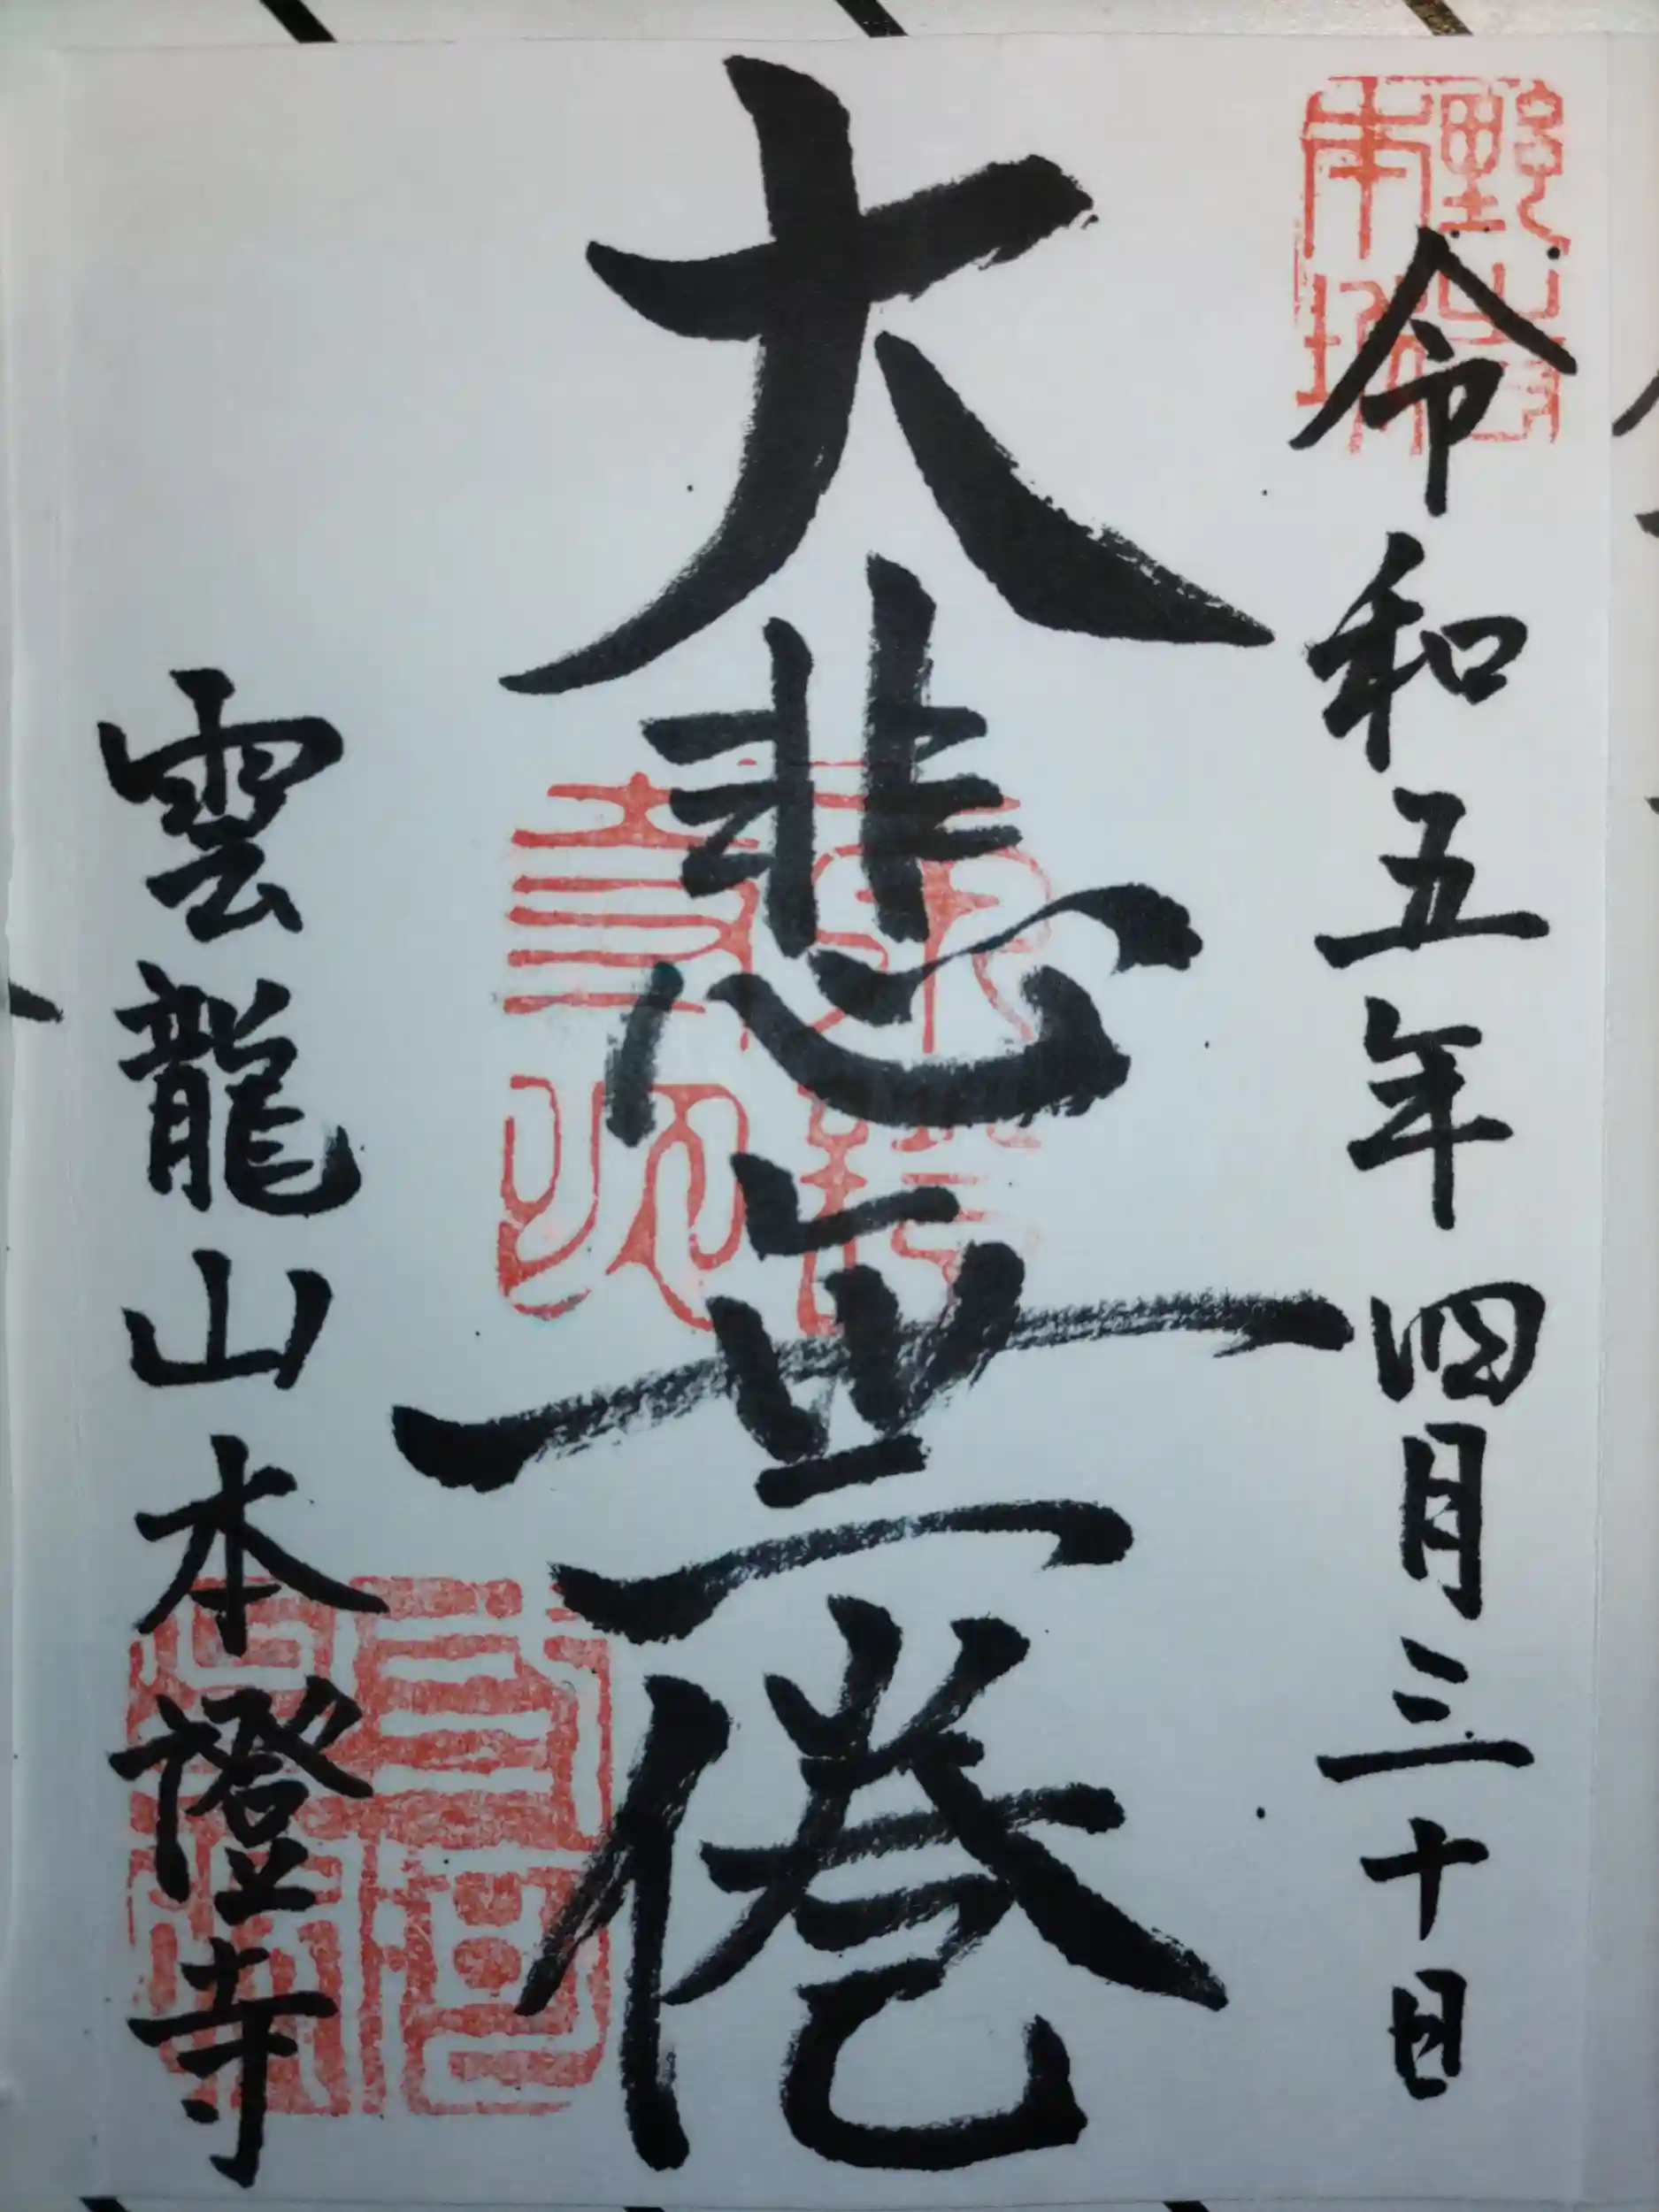 令和五年四月三十日
大悲無倦
雲龍山本證寺